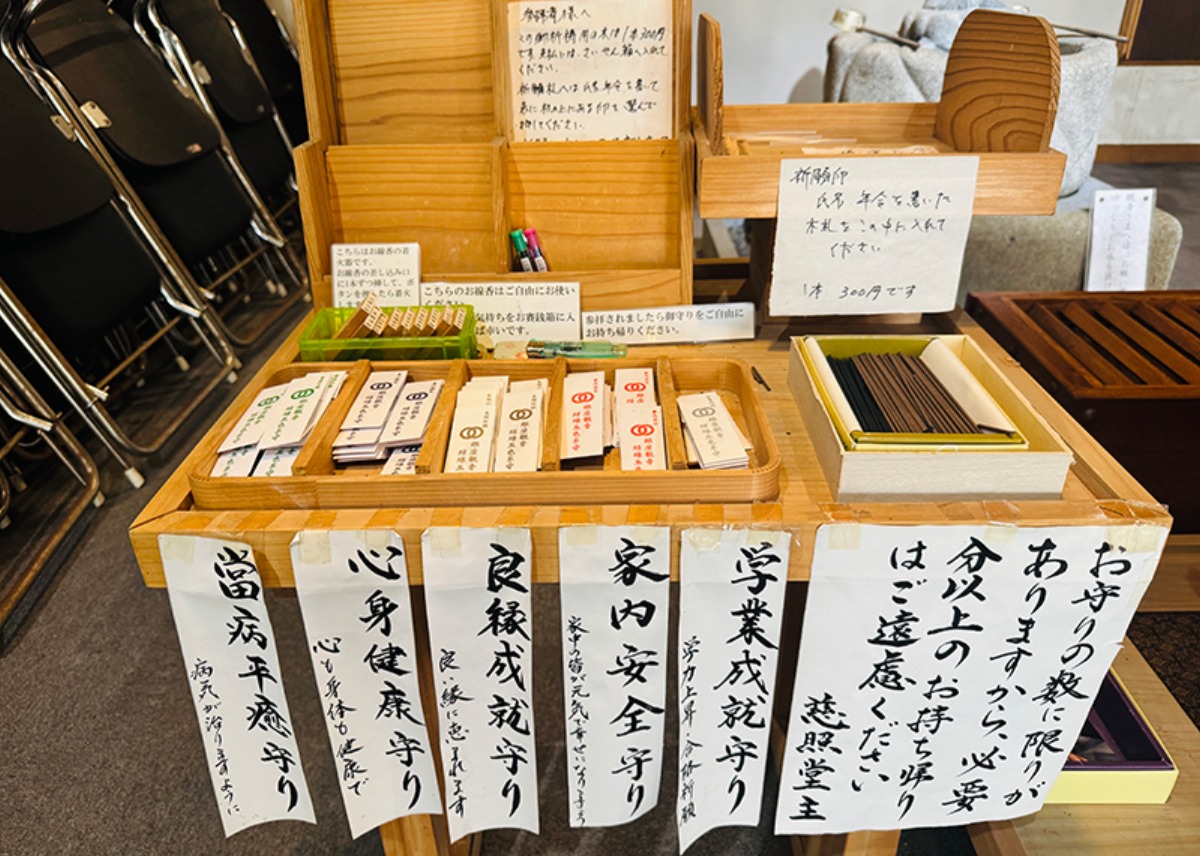 参拝者様へ
この御祈祷用の木は1本300円
です。お払いは、さいせん箱へ入れて
ください。
祈願札へは氏名年令を書いて
押してください。
祈願印
氏名 年令を書いた
木札をこの中に入れて
ください。
1本 300円です
こちらはお線香の着
火器です。
お線香の差し込み口
に1本ずつ挿して、ボ
タンを押したら着火
こちらのお線香はご自由にお使い
ください。
気持ちをお賽銭箱に入
ば幸いです。
参拝されましたら御守りをご自由に
お持ち帰りください。
お守りの数に限りが
ありますから、必要
分以上のお持ち帰り
はご遠慮ください
慈照堂主
学業成就守り
学力上昇・合格祈願
家内安全守り
家中の皆が元気で幸せになります
良縁成就守り
良い縁に恵まれます
心身健康守り
心も身体も健康で
當病平癒守り
病気が治りますように